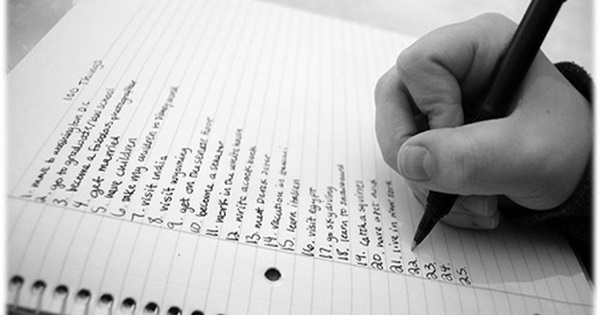 100 Things
1. move to washington D.C
2. go to graduate/law school
3. become a fabulous photographer
4. get married
5. have children
6. take my children to Disney world
7. visit India
8. visit wyoming
9. get on Dean's list
10. become a senator
11. work in the white house
12. write a cook book
13. meet
14. vacation in Hawaii
15. learn italian
16. visit Egypt
17. go skydiving
18. learn to snowboard
19.
20. have a pet duck
21. live in
22.
23.
24.
25.